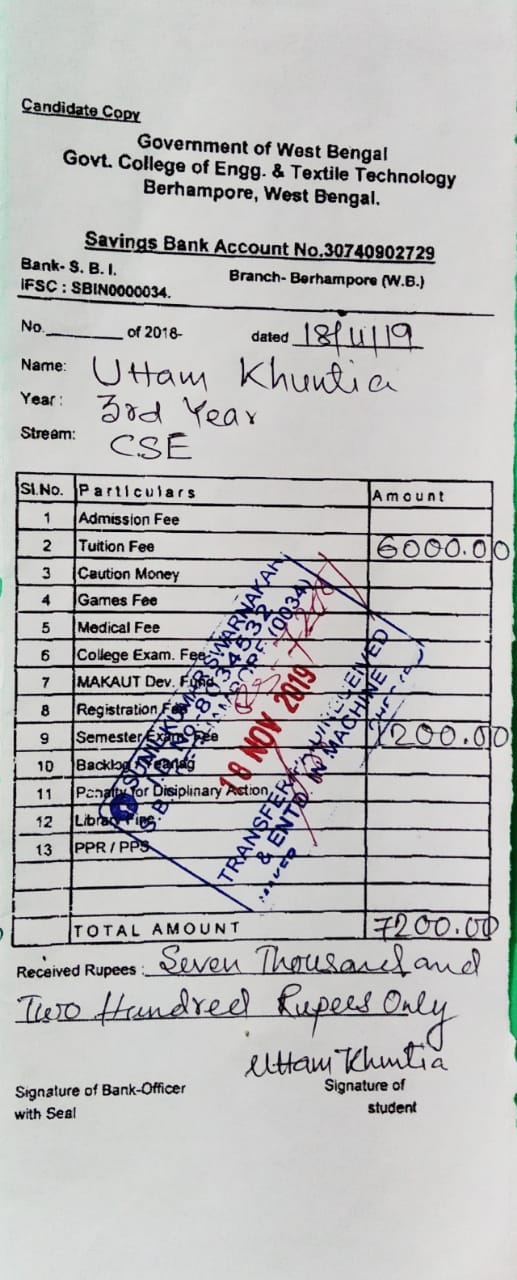 Candidate Copy
Government of West Bengal
Govt. College of Engg. & Textile Technology
Berhampore, West Bengal.
Savings Bank Account No.30740902729
Bank- S. B. I. Branch- Berhampore (W.B.)
IFSC : SBIN0000034.
No. of 2018- dated 18/11/19
Name: Uttam Khuntia
Year: 3rd Year
Stream: CSE
Sl.No. Particulars Amount
1 Admission Fee
2 Tuition Fee 6000.00
3 Caution Money
4 Games Fee
5 Medical Fee
6 College Exam. Fee
7 MAKAUT Dev. Fund
8 Registration Fee
9 Semester Exam. Fee 1200.00
10 Backlog
11 Penalty for Disiplinary Action
12 Library Fine
13 PPR / PPS
SUNIL KUMAR SWARNAKAR
18 NOV 2019
TRANSFER RECEIVED
& ENTD. IN MACHINE
TOTAL AMOUNT 7200.00
Received Rupees : Seven Thousand and
Two Hundred Rupees Only
Uttam Khuntia
Signature of Bank-Officer Signature of
with Seal student